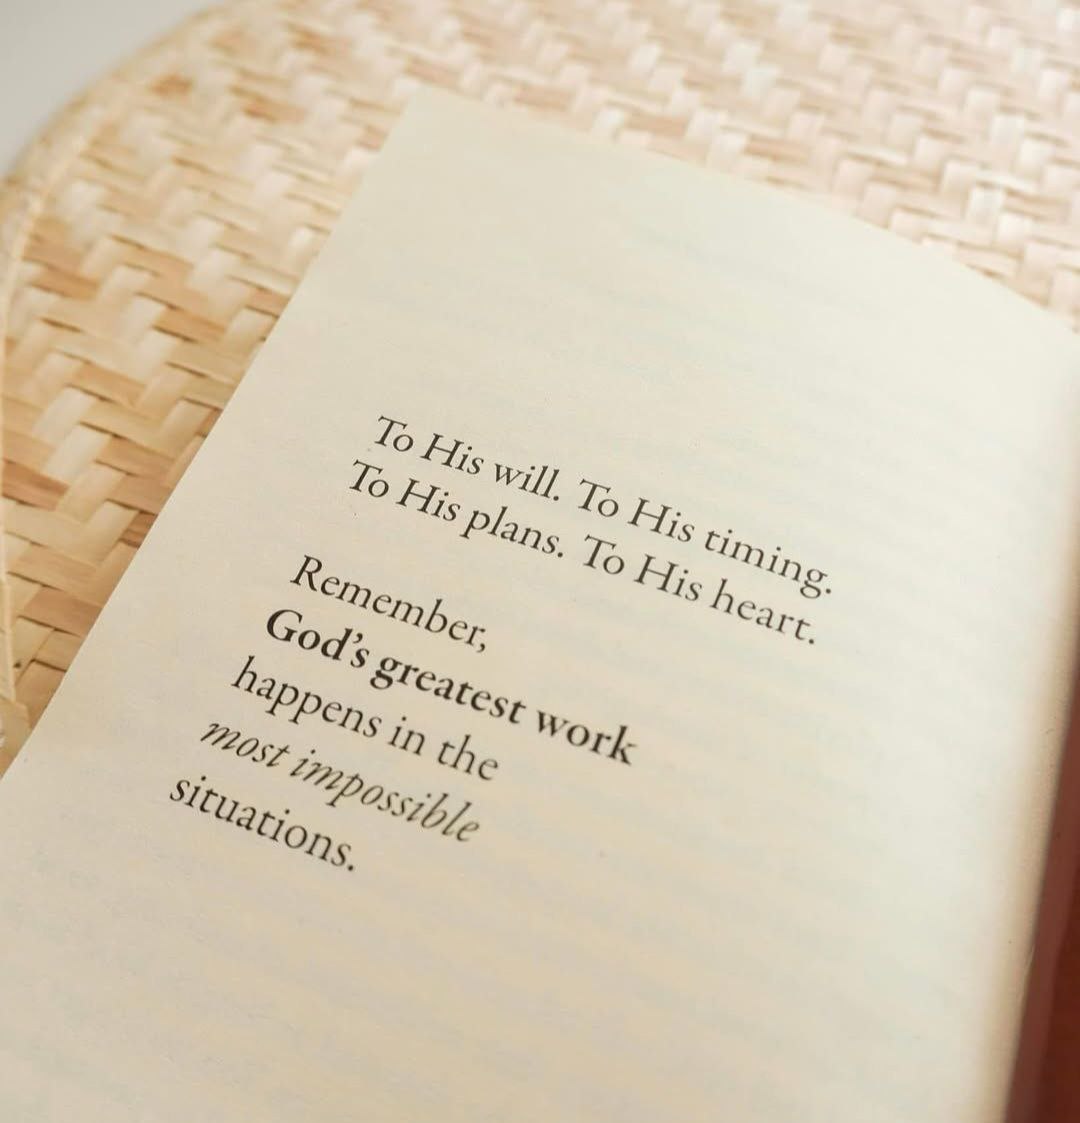 To His will. To His timing.
To His plans. To His heart.
Remember,
God's greatest work
happens in the
most impossible
situations.